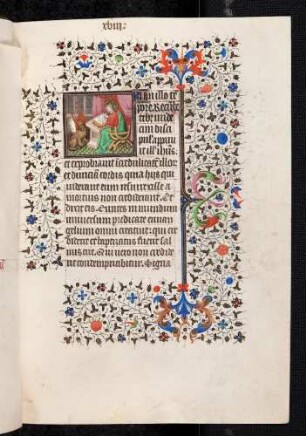 xviij.
In illo te
pore Recu(m)be
tibus unde
cim disci
pulis appuit
ill' ihs.
et exprobravit incredulitate illor
et duritiam cordis quia hijs qui
viderant eum resurrexisse a
mortuis non crediderunt. Et
dixit eis. Euntes in mundum
universum predicate euuan
gelium omni creature: qui cre
diderit et baptizatus fuerit sal
uus erit. Qui uero non credide
rit condempnabitur. Signa